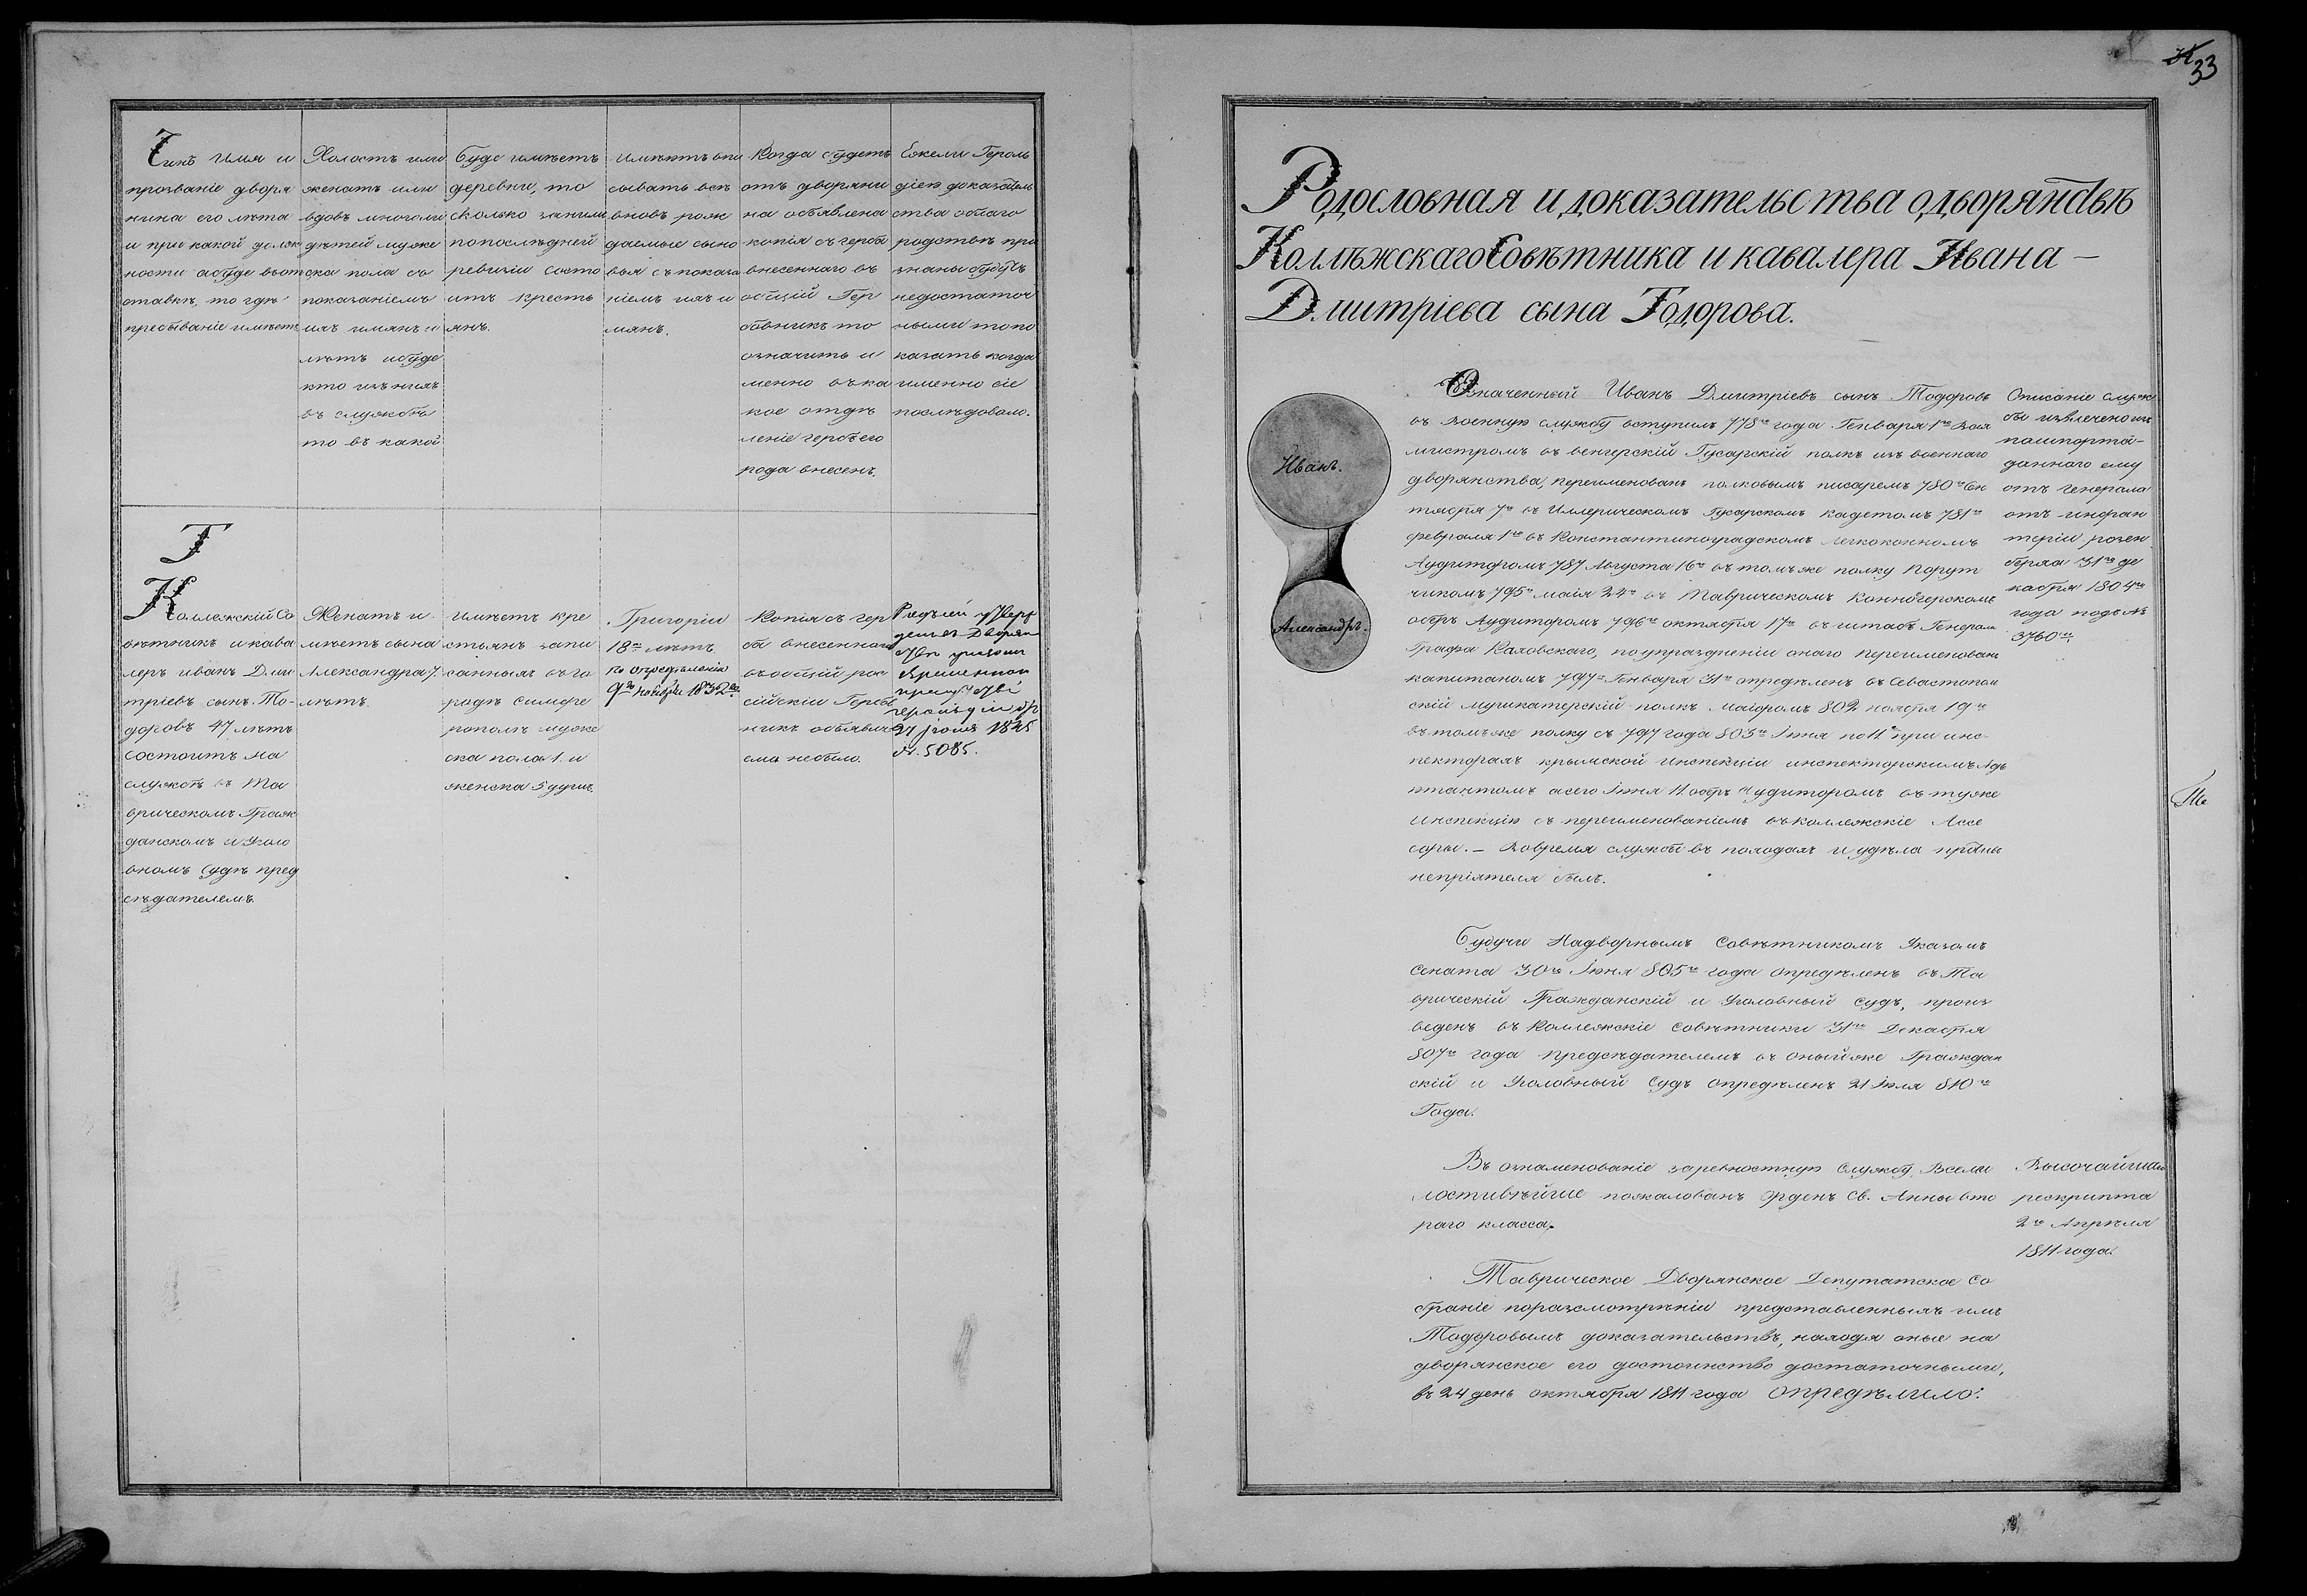 33
Чинъ имя и
прозваніе дворя
нина его лѣта
и при какой долж
ности абуде вьот
ставкѣ, то гдѣ
пребываніе имѣетъ
Холостъ или
женатъ или
вдовъ многоли
дѣтей муже
ска пола съ
показаніемъ
ихъ имянъ и
лѣтъ ибуде
кто изъ нихъ
въ службѣ
то въ какой
Буде имѣетъ
деревни, то
сколько заними
попослѣдней
ревизіи состо
итъ кресть
янъ.
имѣетъ впи
сывать всѣ
вновь рож
даемые сыно
вья съ показа
ніемъ ихъ и
мянъ.
Когда будетъ
отъ дворяни
на объявлена
копія съ герба
внесеннаго въ
общій Гер
бовникъ то
означить и
менно въ ка
кое отдѣ
леніе гербъ его
рода внесенъ.
Ежели Героль
діею доказатель
ства общаго
родствъ при
знаны будутъ
недостаточ
ными топо
казать когда
именно сіе
послѣдовало.
Т
Коллежскій Со
вѣтникъ и кава
леръ иванъ Дми
тріевъ сынъ То-
доровъ 47 лѣтъ
состоитъ на
службѣ въ Та
врическомъ Граж
данскомъ и Уголо
вномъ Судѣ пред
сѣдателемъ
Женатъ и
имѣетъ сына
Александра 7.
лѣтъ.
Имѣетъ кре
стьянъ запи
санныхъ въ го
родѣ Симфе
рополѣ муже
ска пола 1. и
женска 5 душъ.
Григорій
18ти лѣтъ.
По опредѣленію
9го ноября 1832го
Копія съ гер
ба внесеннаго
въ общій рос
сійскій Гербов
никъ объявле
ема небыло.
27 1845
№. 5085.
Родословная и доказательства о дворянствѣ
Коллѣжскаго Совѣтника и кавалера Ивана –
Дмитріева сына Тодорова.
Иванъ.
Александръ.
Означенный Иванъ Дмитріевъ сынъ Тодоровъ
въ военную службу вступилъ 778го года Генваря 1го Вах
мистромъ въ венгерскій Гусарскій полкъ изъ военнаго
дворянства, переименованъ полковымъ писаремъ 780го Сен
тября 7го въ Иллерическомъ Гусарскомъ кадетомъ 781го
февраля 1го въ Константиноградскомъ легкоконномъ
Аудиторомъ 787 Августа 16го въ томъже полку Порут
чикомъ 795го маія 24го въ Таврическомъ Конноегерскомъ
оберъ Аудиторомъ 796го октября 17го въ штабъ Генерала
Графа Каховскаго, по упраздненіи онаго переименованъ
капитаномъ 797го Генваря 31го опредѣленъ въ Севастополь
скій мушкатерскій полкъ Маіоромъ 802 ноября 19го
въ томъже полку съ 797 года 803го Іюня по 11е при инс-
пекторахъ крымской инспекціи инспекторскимъ Адъ
ютантомъ асего Іюня 11. оберъ аудиторомъ въ туже
инспекцію съ переименованіемъ въ коллежскіе Ассе
соры. – Вовремя службы въ походахъ и удѣла противъ
непріятеля былъ.
Описаніе служ
бы извлечено изъ
пашпорта –
даннаго ему
отъ Генерала
отъ инфан
теріи розен
берха 31го де
кабря 1804го
года подъ №
3760мъ
Будучи Надворнымъ Совѣтникомъ Указомъ
Сената 30го Іюня 805го года опредѣленъ въ Та
врическій Гражданскій и Уголовный Судъ, произ
веденъ въ Коллежскіе Совѣтники 31го Декабря
807го года предсѣдателемъ въ оныйже Граждан
скій и Уголовный Судъ опредѣленъ 21 Іюля 810го
Года.
Въ ознаменованіе заревностную Службу Всеми
лостивѣйше пожалованъ Орденъ Св. Анны вто
раго класса.
Высочайшаго
рескрипта
2го Апрѣля
1811 года.
Таврическое Дворянское Депутатское Со
браніе поразсмотрѣніи представленныхъ имъ
Тодоровымъ доказательствъ, находя оные на
дворянское его достоинство достаточными,
въ 24 день октября 1811 года опредѣлило: